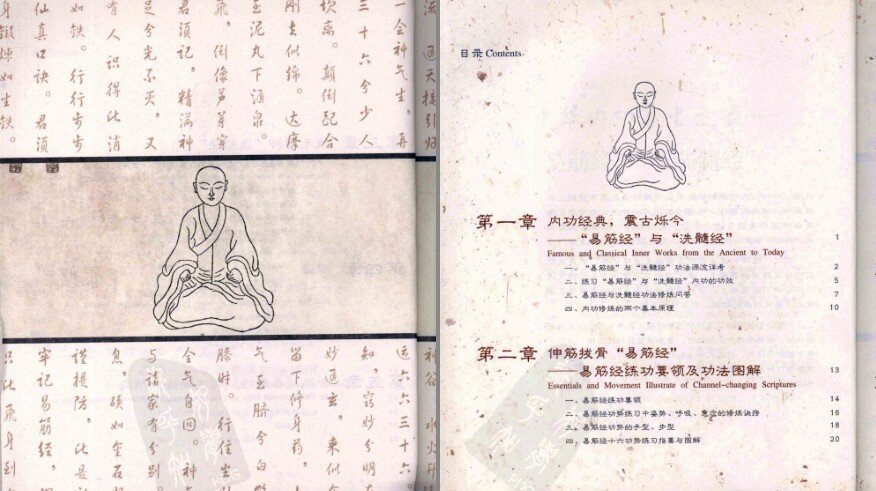 流 通天接引归
一会神气生，再
三十六兮少人
坎离。颠倒配合
刚去似绵。达摩
至泥丸下涌泉。
飞，倒像芦芽穿
君须记，精满神
足兮光不灭，又
有人识得此消
如铁。行行步步
仙真口诀。君须
身锻炼如生铁。
神谷 水火升
运六六三十六。
知，窍妙分明在
妙通玄，来似金
留下修身药，
气至脐兮白
膝时。行住坐
令气自回。神
与诸家有分别
息。硕如金石
谨提防，此是
牢记易筋经。
只此飞身到
目录 Contents
第一章 内功经典，震古烁今
——“易筋经”与“洗髓经” 1
Famous and Classical Inner Works from the Ancient to Today
一、“易筋经”与“洗髓经”功法源流详考 2
二、练习“易筋经”与“洗髓经”内功的功效 5
三、易筋经与洗髓经功法修炼问答 7
四、内功修炼的两个基本原理 10
第二章 伸筋拔骨“易筋经”
——易筋经练功要领及功法图解 13
Essentials and Movement Illustrate of Channel-changing Scriptures
一、易筋经练功要领 14
二、易筋经功势练习中姿势、呼吸、意念的修炼诀窍 16
三、易筋经功势的手型、步型 18
四、易筋经十六功势练习指要与图解 20